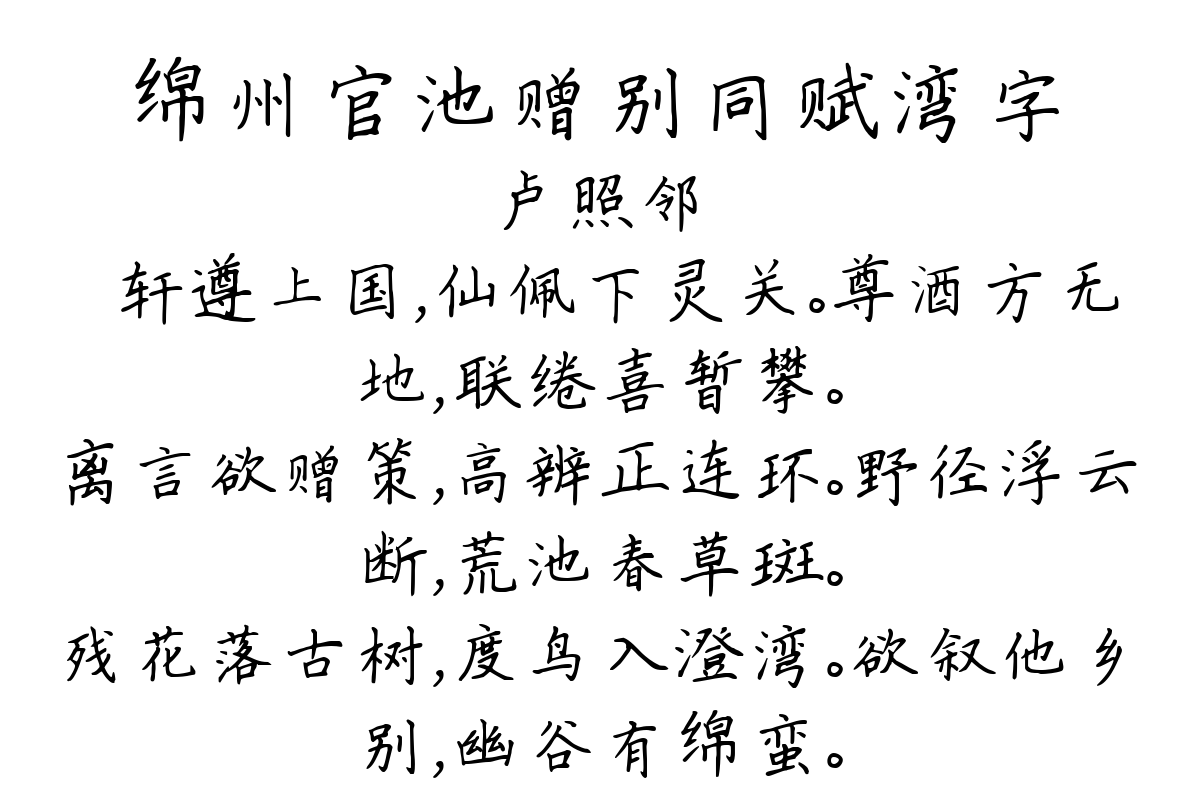 绵州官池赠别同赋湾字
卢照邻
轩遵上国,仙佩下灵关。尊酒方无
地,联绻喜暂攀。
离言欲赠策,高辨正连环。野径浮云
断,荒池春草斑。
残花落古树,度鸟入澄湾。欲叙他乡
别,幽谷有绵蛮。